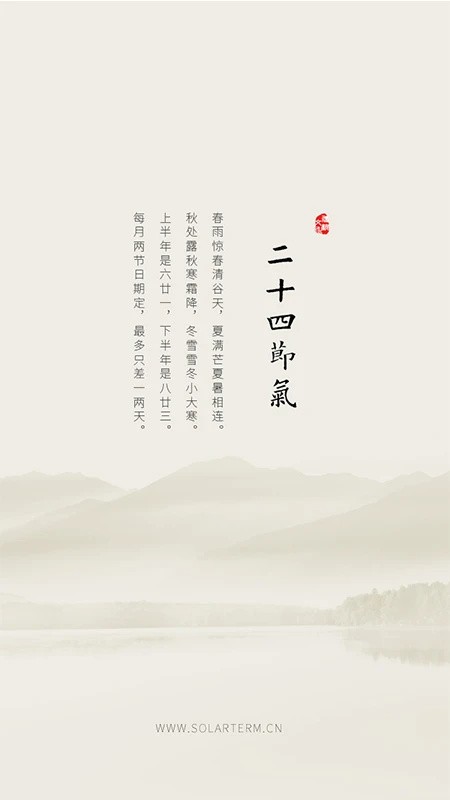 二十四節氣
春雨惊春清谷天，夏满芒夏暑相连。
秋处露秋寒霜降，冬雪雪冬小大寒。
上半年是六廿一，下半年是八廿三。
每月两节日期定，最多只差一两天。
WWW.SOLARTERM.CN